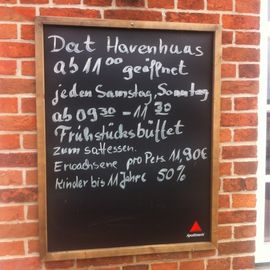 Dat Havenhaus
ab 11⁰⁰ geöffnet
jeden Samstag, Sonntag
ab 09³⁰ - 11³⁰
Frühstücksbüffet
zum sattessen.
Erwachsene pro Pers. 11,90€
Kinder bis 11 Jahre 50%
Apollinaris